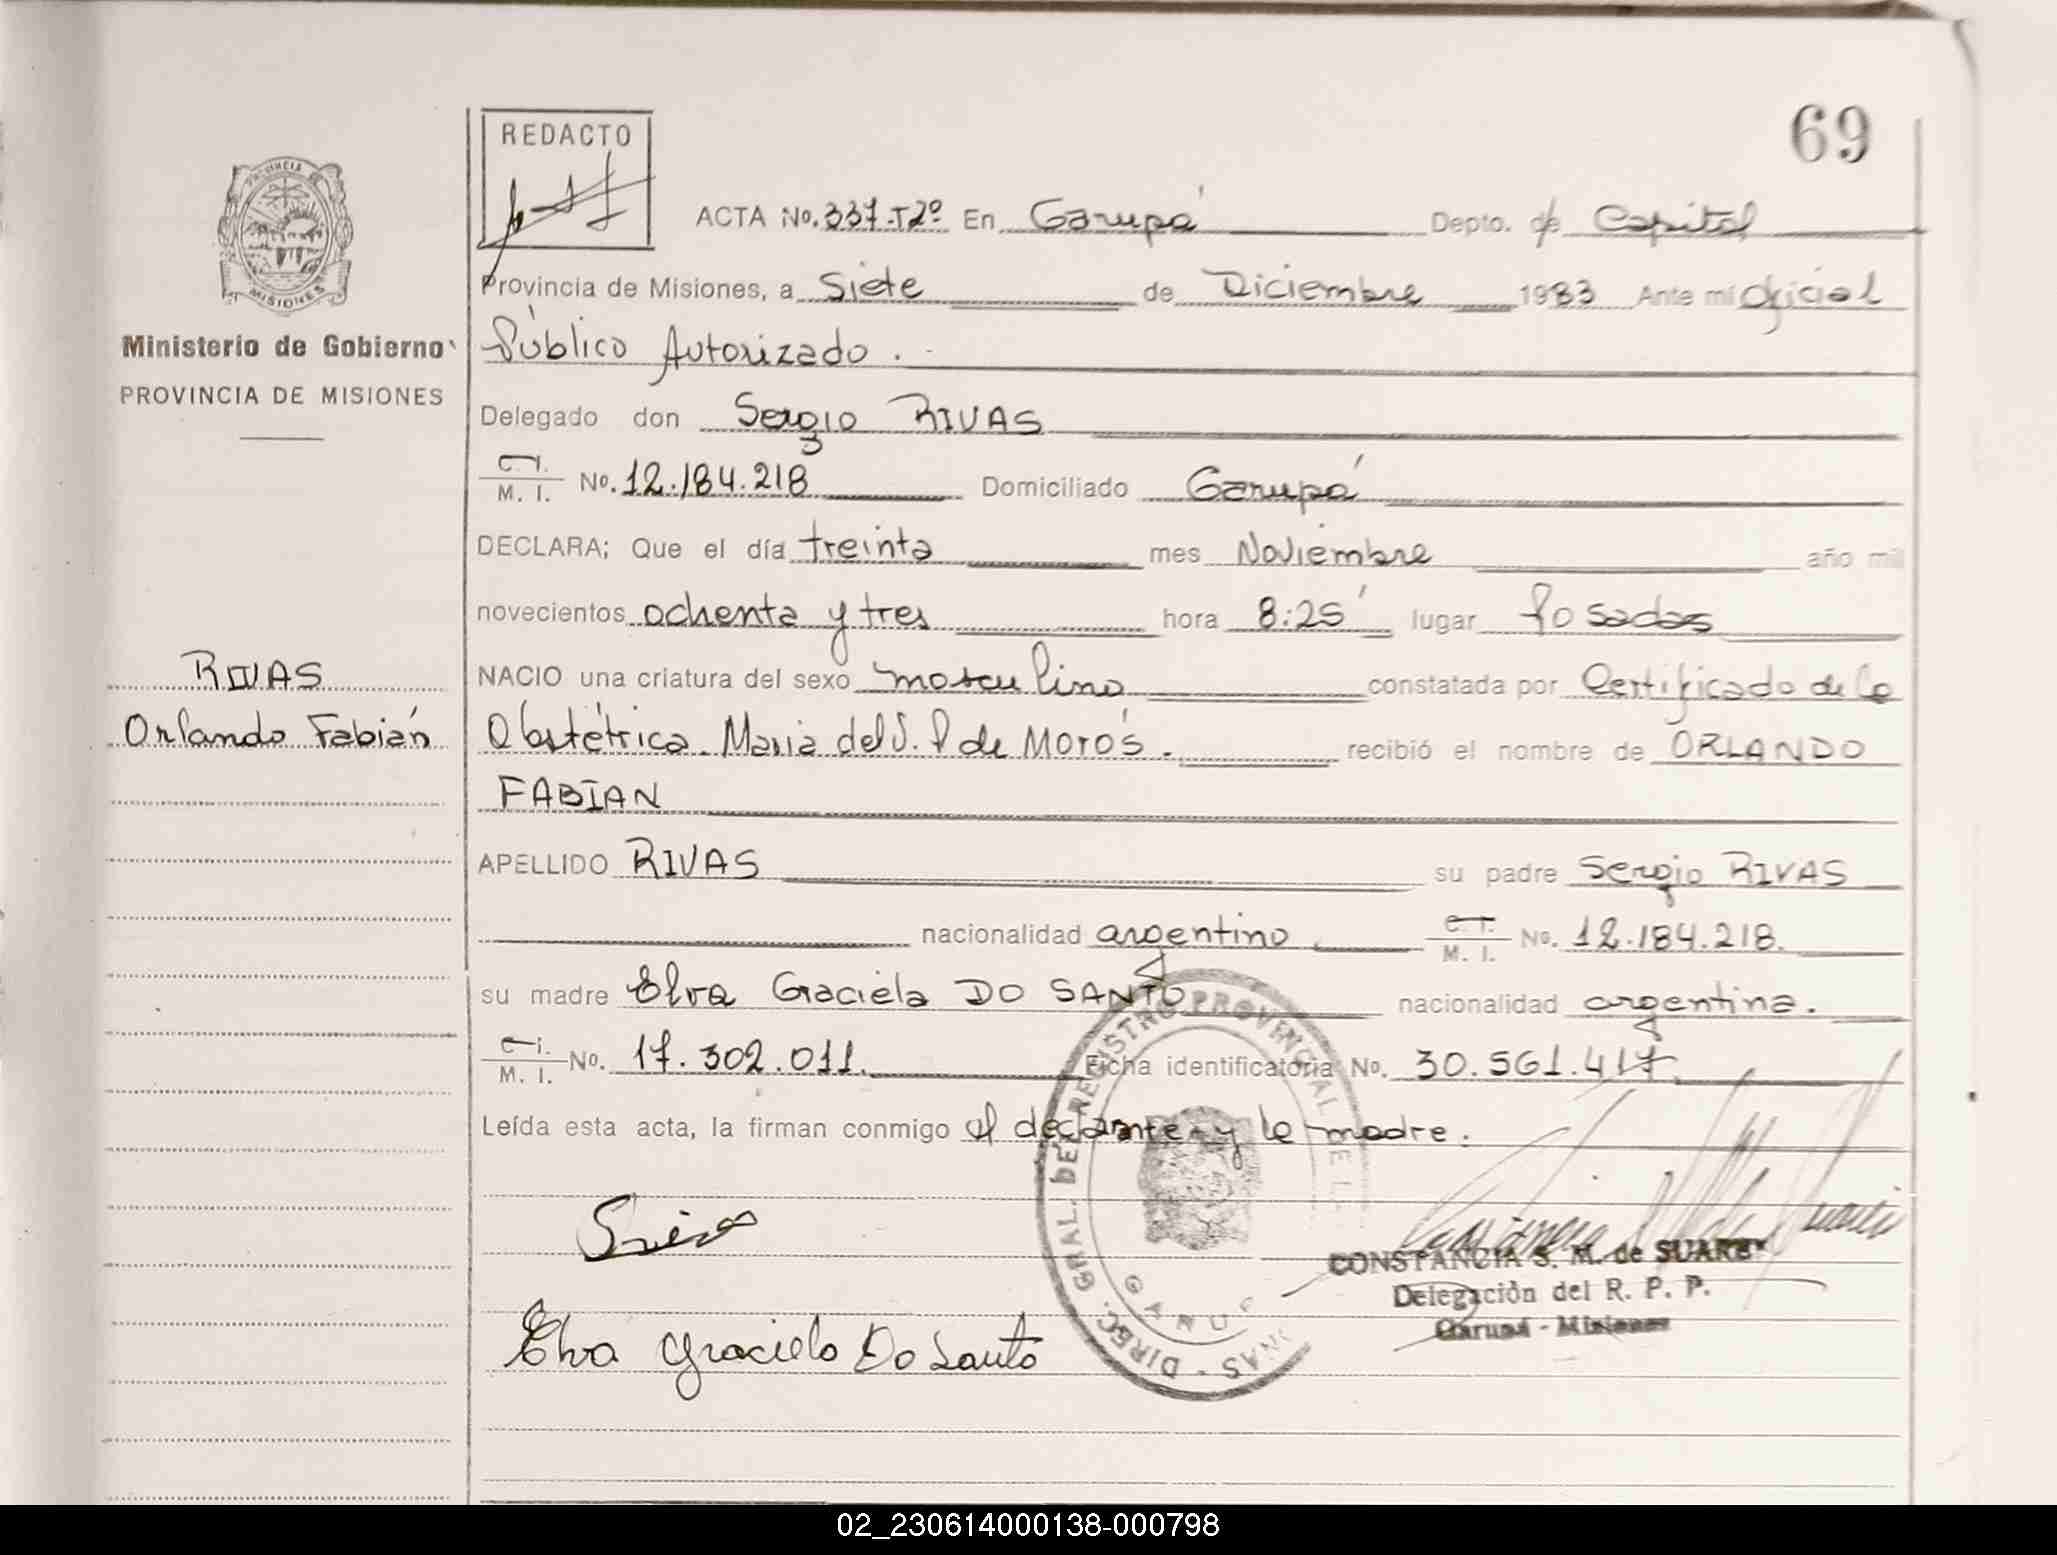 69
REDACTO
ACTA No. 337-T2º En Garupá Depto. de Capital
Provincia de Misiones, a Siete de Diciembre 1983 Ante mi Oficial
Público Autorizado.
Delegado don Sergio RIVAS
C. I. M. I. No. 12.184.218 Domiciliado Garupá
DECLARA; Que el día treinta mes Noviembre año mil
novecientos ochenta y tres hora 8:25' lugar Posadas
NACIO una criatura del sexo masculino constatada por Certificado de la
Obstétrica María del S. P de Morós. recibió el nombre de ORLANDO
FABIAN
APELLIDO RIVAS su padre Sergio RIVAS
nacionalidad argentino C. I. M. I. No. 12.184.218.
su madre Elva Graciela DO SANTO nacionalidad argentina.
C. I. M. I. No. 17.302.011. Ficha identificatoria No. 30.561.417
Leída esta acta, la firman conmigo el declarante y la madre.
Elva Graciela Do Santo
CONSTANCIA S. M. de SUAREZ
Delegación del R. P. P.
Garupá - Misiones
DIREC. GRAL. DEL REGISTRO PROVINCIAL DE L
PROVINCIA DE
MISIONES
Ministerio de Gobierno
PROVINCIA DE MISIONES
RIVAS
Orlando Fabián
02_230614000138-000798